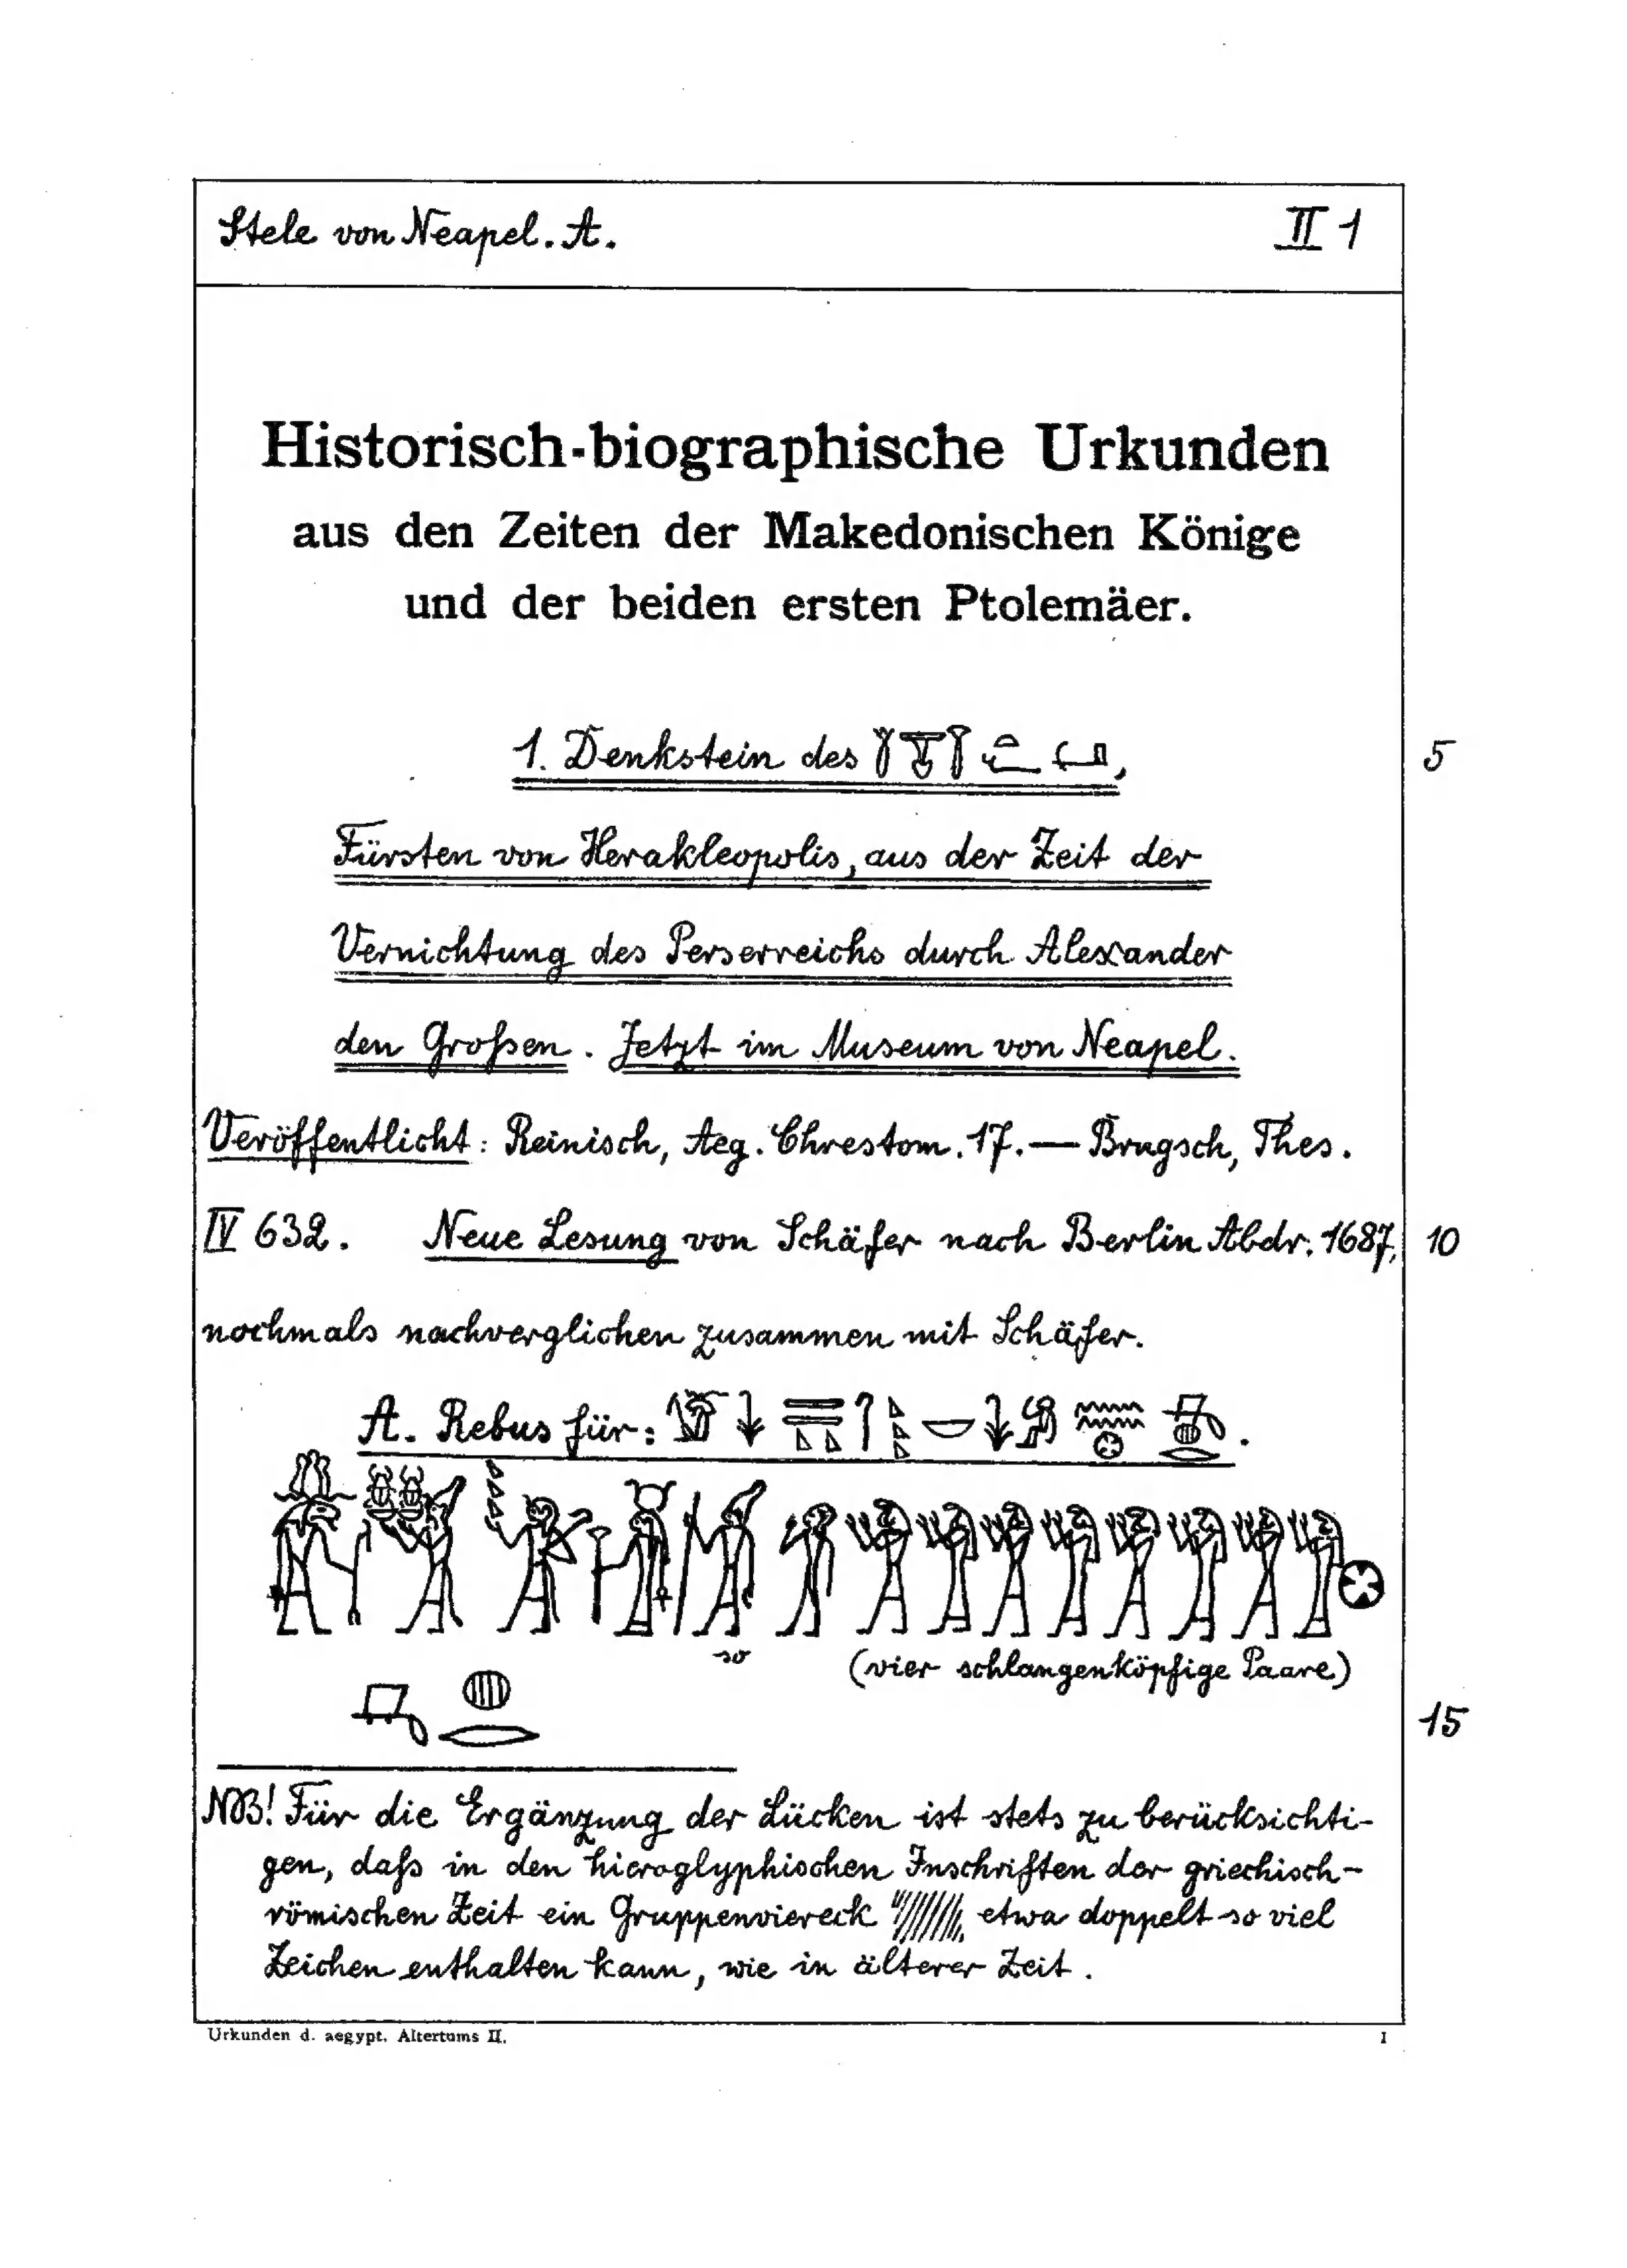 Stele von Neapel. A. II 1
Historisch-biographische Urkunden
aus den Zeiten der Makedonischen Könige
und der beiden ersten Ptolemäer.
1. Denkstein des , 5
Fürsten von Herakleopolis, aus der Zeit der
Vernichtung des Perserreichs durch Alexander
den Großen. Jetzt im Museum von Neapel.
Veröffentlicht: Reinisch, Aeg. Chrestom. 17. — Brugsch, Thes.
IV 632. Neue Lesung von Schäfer nach Berlin Abdr. 1687, 10
nochmals nachverglichen zusammen mit Schäfer.
A. Rebus für: .
so (vier schlangenköpfige Paare)
15
NB! Für die Ergänzung der Lücken ist stets zu berücksichti-
gen, daß in den hieroglyphischen Inschriften der griechisch-
römischen Zeit ein Gruppenviereck etwa doppelt so viel
Zeichen enthalten kann, wie in älterer Zeit.
Urkunden d. aegypt. Altertums II. 1